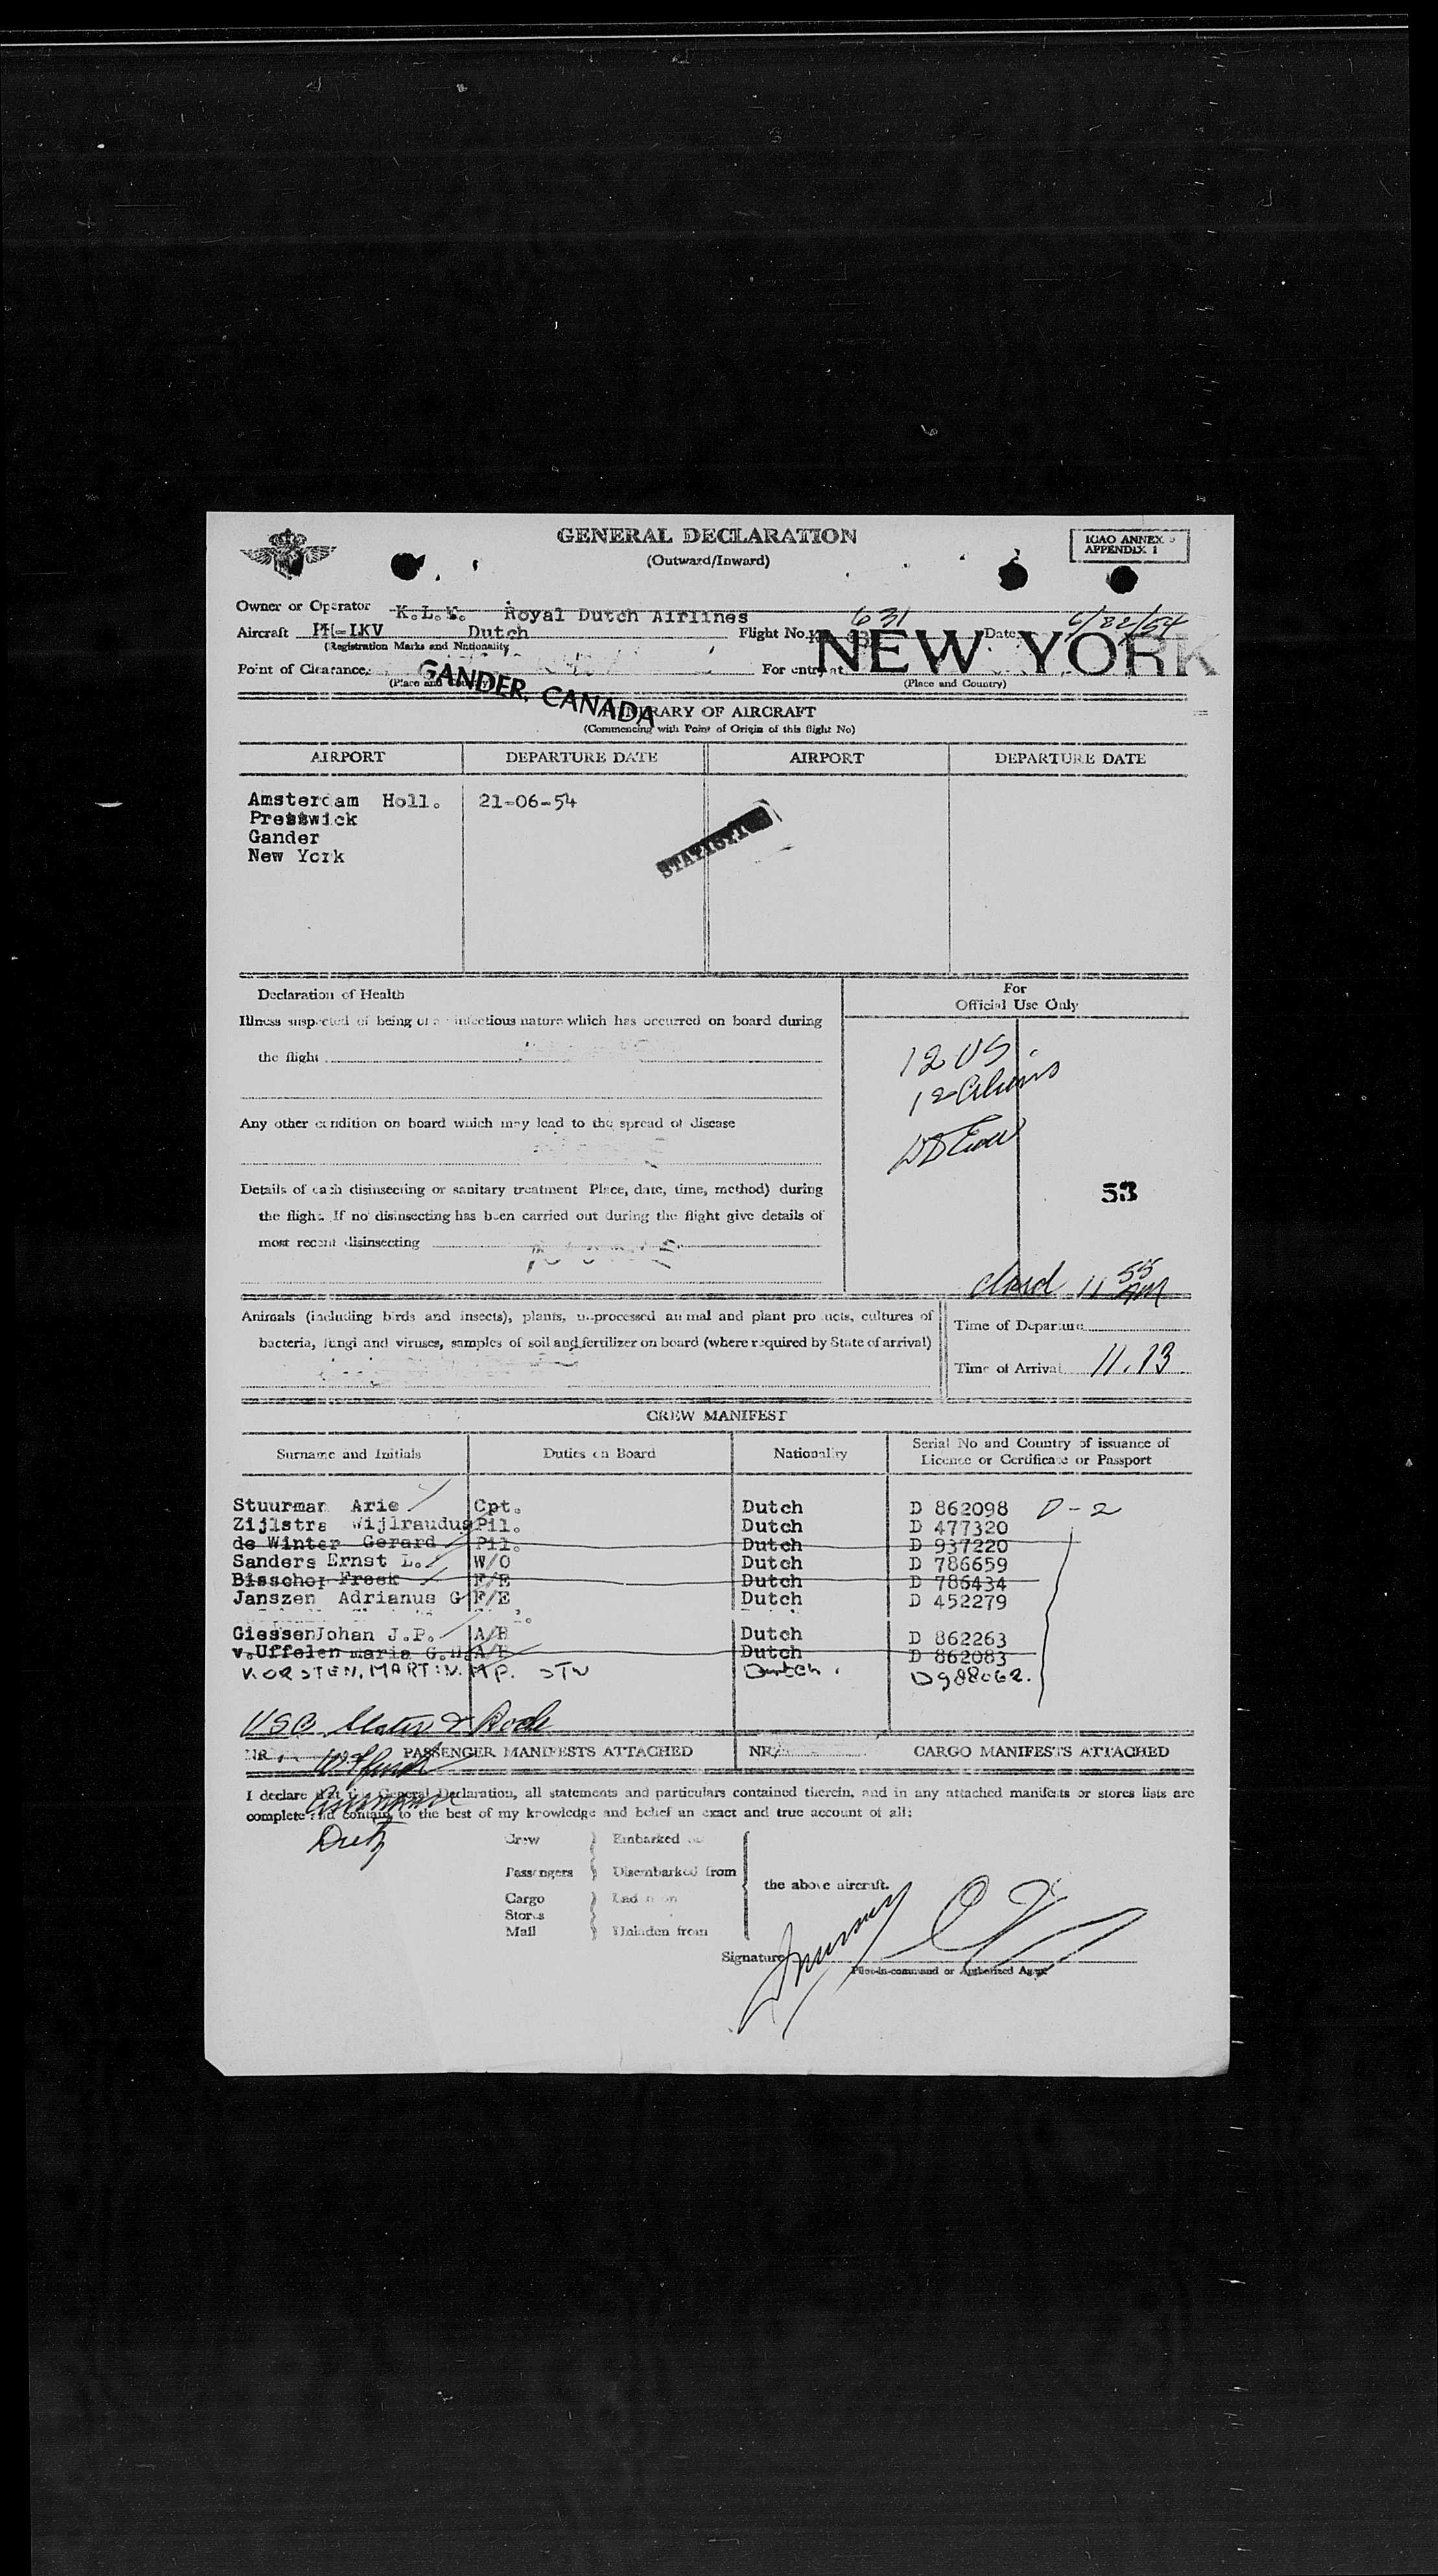 GENERAL DECLARATION
(Outward/Inward)
ICAO ANNEX 9
APPENDIX 1
Owner or Operator K.L.M. Royal Dutch Airlines
Aircraft PH-LKV Dutch Flight No. 631 Date 6/22/54
(Registration Marks and Nationality
Point of Clearance GANDER, CANADA For entry at NEW YORK
(Place and Country) (Place and Country)
ITINERARY OF AIRCRAFT
(Commencing with Point of Origin of this flight No)
AIRPORT DEPARTURE DATE AIRPORT DEPARTURE DATE
Amsterdam Holl. 21-06-54
Prestwick
Gander
New York
STATISTI
Declaration of Health
For
Official Use Only
Illness suspected of being of an infectious nature which has occurred on board during
the flight
12 US
12 Aliens
Any other condition on board which may lead to the spread of disease
Details of each disinsecting or sanitary treatment Place, date, time, method) during
the flight. If no disinsecting has been carried out during the flight give details of
most recent disinsecting NONE
53
11 55 AM
Animals (including birds and insects), plants, unprocessed animal and plant products, cultures of
bacteria, fungi and viruses, samples of soil and fertilizer on board (where required by State of arrival)
Time of Departure
Time of Arrival 11.13
CREW MANIFEST
Surname and Initials Duties on Board Nationality Serial No and Country of issuance of
Licence or Certificate or Passport
Stuurman Arie Cpt. Dutch D 862098 D-2
Zijlstra Wijlraudus Pil. Dutch D 477320
de Winter Gerard Pil. Dutch D 937220
Sanders Ernst L. W/O Dutch D 786659
Bisschop Freek F/E Dutch D 786434
Janszen Adrianus G F/E Dutch D 452279
Giessen Johan J.P. A/P Dutch D 862263
v.Uffelen maria G.H. A/E Dutch D 862083
KORSTEN, MARTIN. M P. STW Dutch. D988062.
NR. PASSENGER MANIFESTS ATTACHED NR. CARGO MANIFESTS ATTACHED
I declare that this General Declaration, all statements and particulars contained therein, and in any attached manifests or stores lists are
complete and contain to the best of my knowledge and belief an exact and true account of all:
Crew Embarked on
Passengers Disembarked from
the above aircraft.
Cargo Laden on
Stores
Mail Unladen from
Signature
Pilot-in-command or Authorized Agent